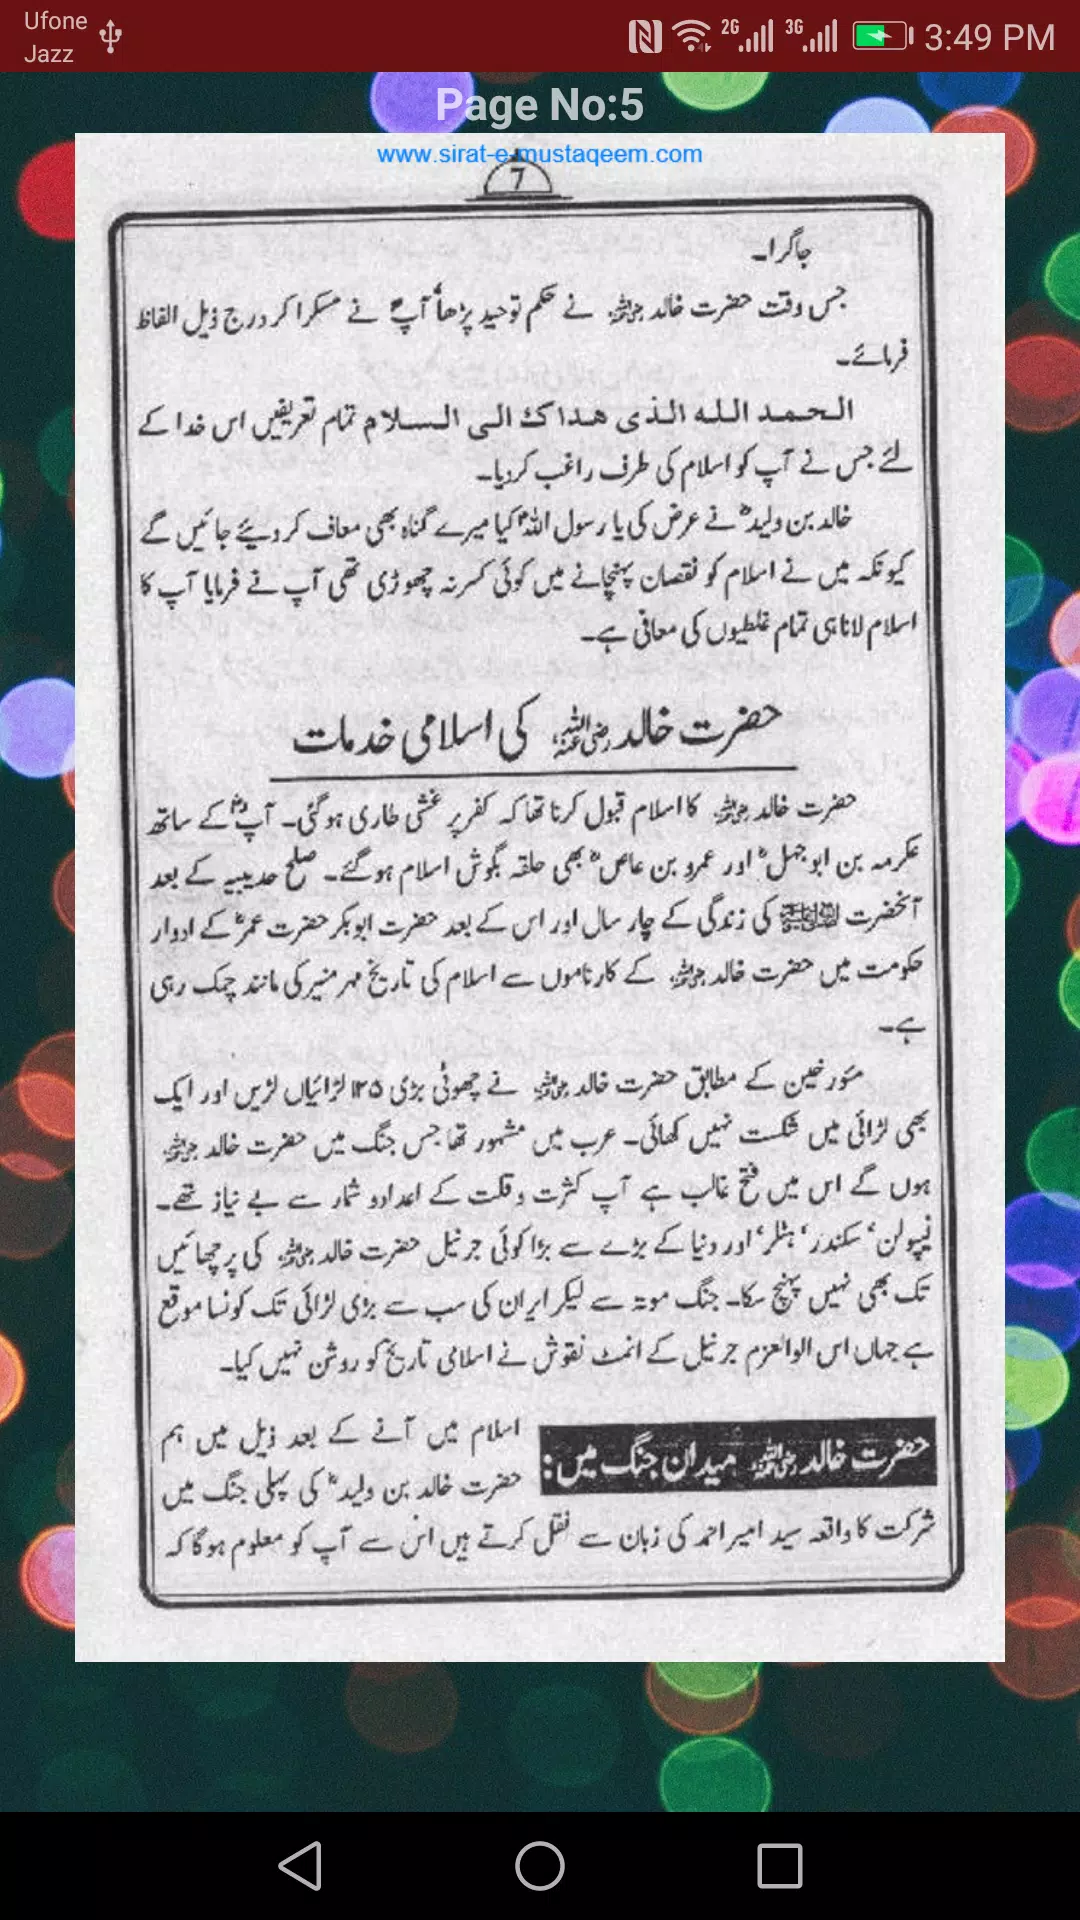 Ufone
Jazz
2G
3G
3:49 PM
Page No:5
www.sirat-e-mustaqeem.com
7
جاگرا۔
جس وقت حضرت خالد رضی اللہ عنہ نے حکم توحید پڑھا' آپؐ نے مسکرا کر درج ذیل الفاظ
فرمائے۔
الحمد الله الذی هداک الی السلام تمام تعریفیں اس خدا کے
لئے جس نے آپ کو اسلام کی طرف راغب کردیا۔
خالد بن ولیدؓ نے عرض کی یا رسول اللہؐ کیا میرے گناہ بھی معاف کر دیئے جائیں گے
کیونکہ میں نے اسلام کو نقصان پہنچانے میں کوئی کسر نہ چھوڑی تھی آپ نے فرمایا آپ کا
اسلام لانا ہی تمام غلطیوں کی معافی ہے۔
حضرت خالد رضی اللہ عنہ کی اسلامی خدمات
حضرت خالد رضی اللہ عنہ کا اسلام قبول کرنا تھا کہ کفر پر غشی طاری ہوگئی۔ آپؓ کے ساتھ
عکرمہ بن ابوجہلؓ اور عمرو بن عاصؓ بھی حلقہ بگوش اسلام ہوگئے۔ صلح حدیبیہ کے بعد
آنحضرت ﷺ کی زندگی کے چار سال اور اس کے بعد حضرت ابوبکر حضرت عمرؓ کے ادوار
حکومت میں حضرت خالد رضی اللہ عنہ کے کارناموں سے اسلام کی تاریخ مہر منیر کی مانند چمک رہی
ہے۔
مئورخین کے مطابق حضرت خالد رضی اللہ عنہ نے چھوٹی بڑی ۱۲۵ لڑائیاں لڑیں اور ایک
بھی لڑائی میں شکست نہیں کھائی۔ عرب میں مشہور تھا جس جنگ میں حضرت خالد رضی اللہ عنہ
ہوں گے اس میں فتح غالب ہے آپ کثرت وقلت کے اعدادو شمار سے بے نیاز تھے۔
نیپولن' سکندر' ہٹلر' اور دنیا کے بڑے سے بڑا کوئی جرنیل حضرت خالد رضی اللہ عنہ کی پرچھائیں
تک بھی نہیں پہنچ سکا۔ جنگ موتہ سے لیکر ایران کی سب سے بڑی لڑائی تک کونسا موقع
ہے جہاں اس الوالعزم جرنیل کے انمٹ نقوش نے اسلامی تاریخ کو روشن نہیں کیا۔
حضرت خالد رضی اللہ عنہ میدان جنگ میں:
اسلام میں آنے کے بعد ذیل میں ہم
حضرت خالد بن ولیدؓ کی پہلی جنگ میں
شرکت کا واقعہ سید امیر احمد کی زبان سے نقل کرتے ہیں اس سے آپ کو معلوم ہوگا کہ